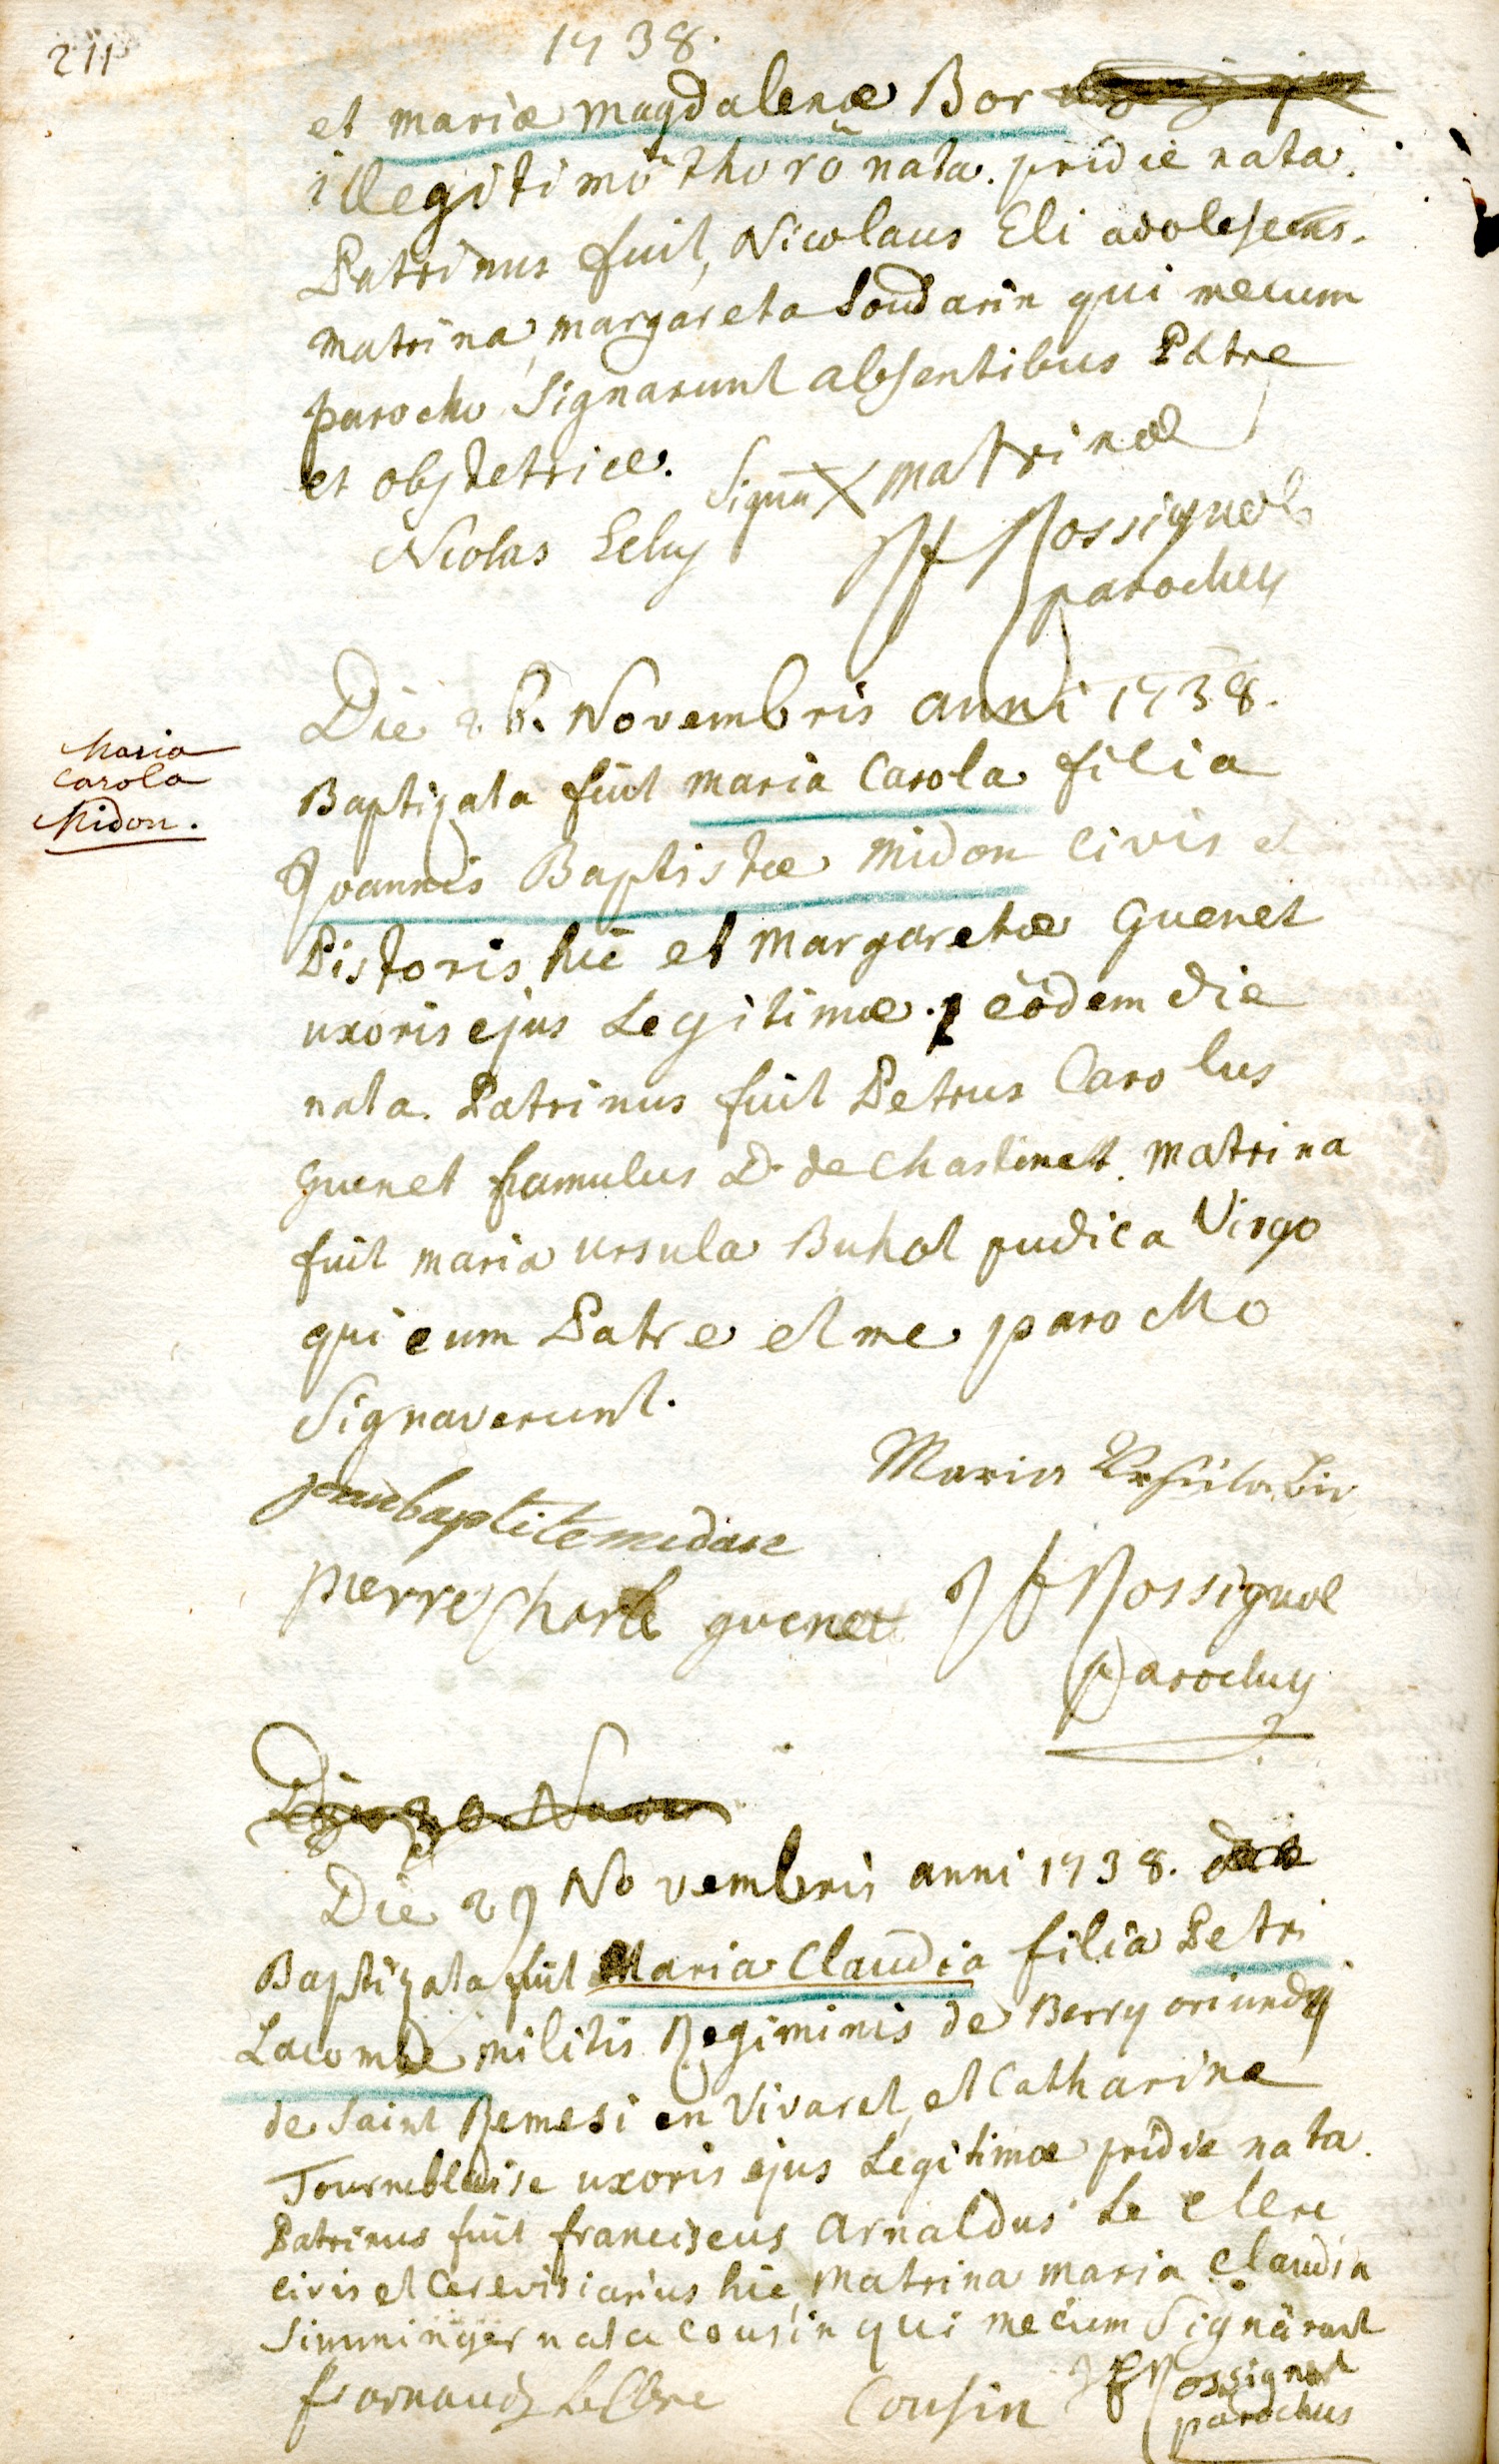 211
1738.
et mariæ magdalenæ Bor
illegitimo thoro nata. pridie nata.
Patrinus fuit, Nicolaus Eli adolescens.
matrina, margareta Soudarin qui mecum
parocho signarunt absentibus Patre
et obstetrice.
Signu X matrinæ
Nicolas Eeluy
Jf Rossignol
parochus
Die 26. Novembris anni 1738.
Maria
Carola
Midon.
Baptizata fuit maria Carola filia
Joannis Baptistæ midon civis et
Pistoris hic et margaretæ Guenet
uxoris ejus Legitimæ. eodem die
nata. Patrinus fuit Petrus Carolus
guenet famulus D. de Chastinet. matrina
fuit maria ursula Buhot pudica Virgo
qui cum Patre et me parocho
signaverunt.
Maria Ursula
jeanbaptite midon
pierre Charle guenet
Jf Rossignol
parochus
Die 29 Novembris anni 1738.
Baptizata fuit Maria Claudia filia Petri
Lacombe militis Regiminis de Berry oriundi
de Saint Remesi en Vivaret, et Catharinæ
Tourneblaise uxoris ejus Legitimæ pridie nata.
Patrinus fuit franciscus Arnaldus Le Clerc
civis et Cerevisiarius hic, matrina maria Claudia
Simminger nata Cousin qui mecum signarunt
f arnaud LeClerc
Cousin
Jf Rossignol
parochus